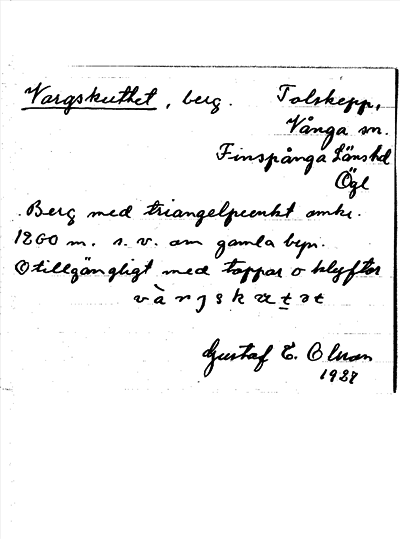 Vargskuttet, berg. Tolskepp,
Vånga sn.
Finspånga Länshd
Ögl
Berg med triangelpunkt omkr.
1200 m. s. v. om gamla byn.
Otillgängligt med toppar o klyftor
Gustaf E. Olsson
1927